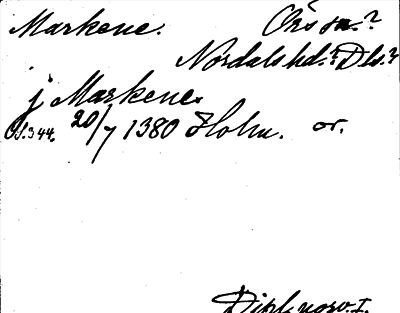 Markene. Ors sn.?
Nordals hd.? Dls.?
j Markene
OS.344. 20/7 1380 Holm. or.
Dipl. norv. I.